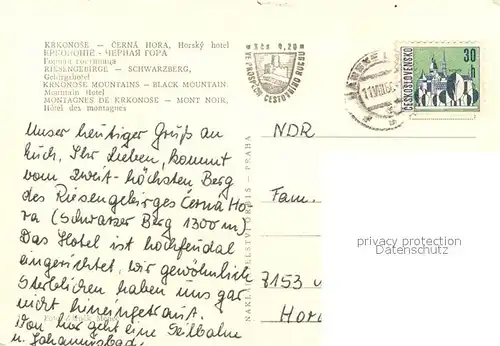 KRKONOŠE — ČERNÁ HORA, Horský hotel
КРКОНОШЕ - ЧЕРНАЯ ГОРА
Горная гостиница
RIESENGEBIRGE — SCHWARZBERG,
Gebirgshotel
KRKONOŠE MOUNTAINS — BLACK MOUNTAIN
Mountain Hotel
MONTAGNES DE KRKONOŠE — MONT NOIR,
Hôtel des montagnes
Kčs 0,20
VE PROSPĚCH CESTOVNÍHO RUCHU
30 h
ČESKOSLOVENSKO
NDR
Fam.
7153
Unser heutiger Gruß an
Euch, Ihr Lieben, kommt
vom zweit-höchsten Berg
des Riesengebirges Černá Ho-
ra (schwarzer Berg 1300 m)
Das Hotel ist hochfeudal
eingerichtet, wir gewöhnlich
Sterblichen haben uns gar
nicht hineingetraut.
Von hier geht eine Seilbahn
n. Johannisbad
PRAHA
privacy protection
Datenschutz